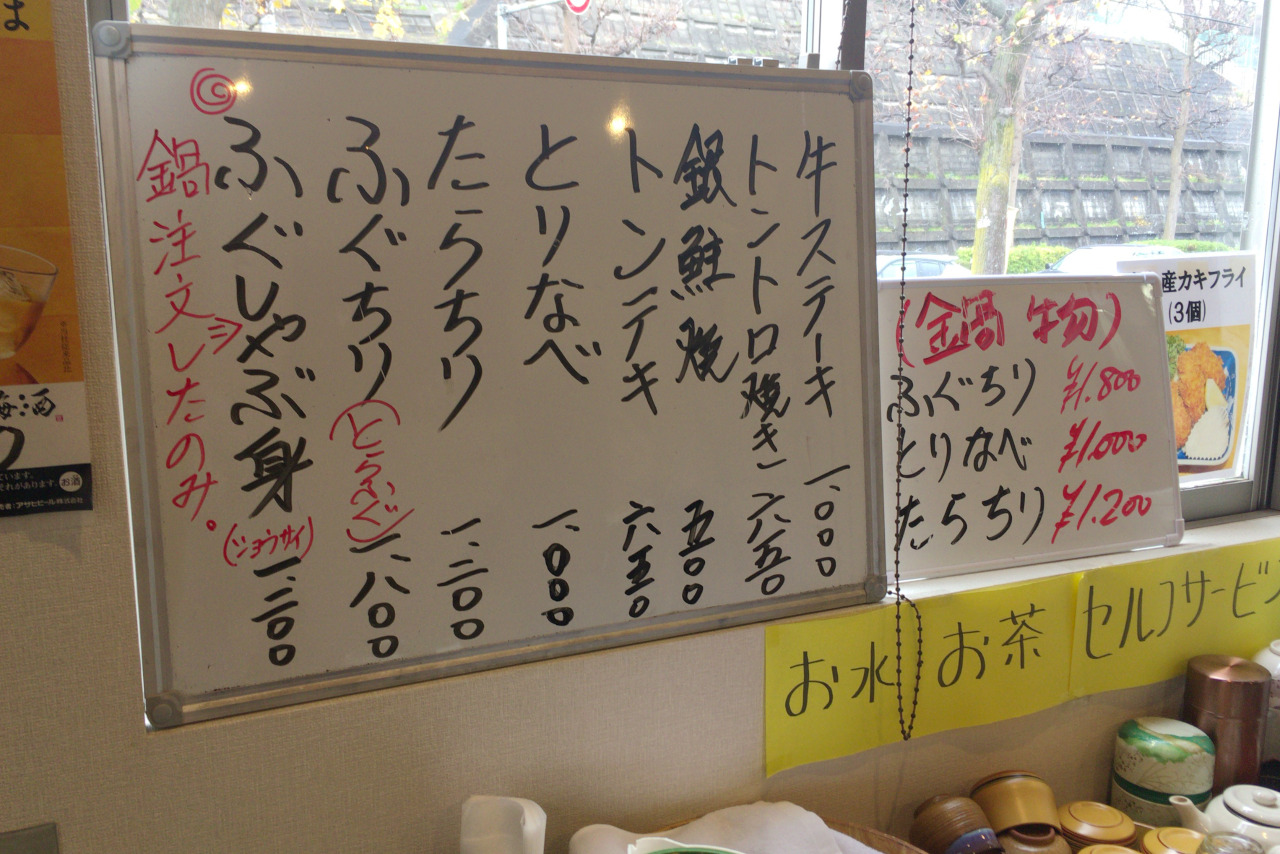 牛ステーキ 一、〇〇〇
トントロ焼き 六五〇
銀鮭焼 五〇〇
トンテキ 六五〇
とりなべ 一、〇〇〇
たらちり 一、二〇〇
ふぐちり(とらふぐ) 一、八〇〇
ふぐしゃぶ身(ショウサイ) 一、二〇〇
◎鍋注文したのみ。
(鍋 物)
ふぐちり ¥1.800
とりなべ ¥1.000
たらちり ¥1.200
産カキフライ
(3個)
お水 お茶 セルフサービ
は
梅酒
ています。
それがあります。
お酒
者:アサヒビール株式会社